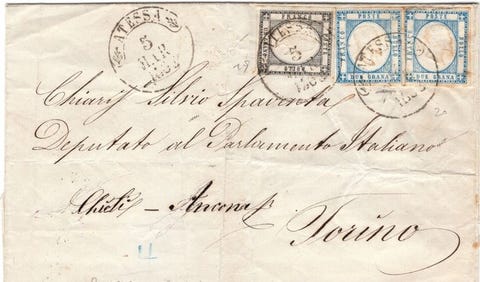 ATESSA
5
MAR
1862
POSTE
POSTE
POSTE
DUE GRANA
DUE GRANA
ATESSA
5
ATESSA
Silvio Spaventa
Deputato al Parlamento Italiano
Chieti – Ancona p
Torino